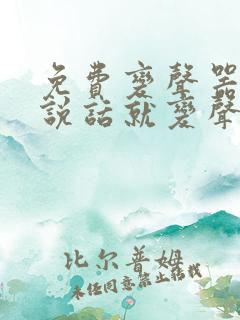 免費變聲器
說話就變聲
比尔普姆
未经同意禁止转载